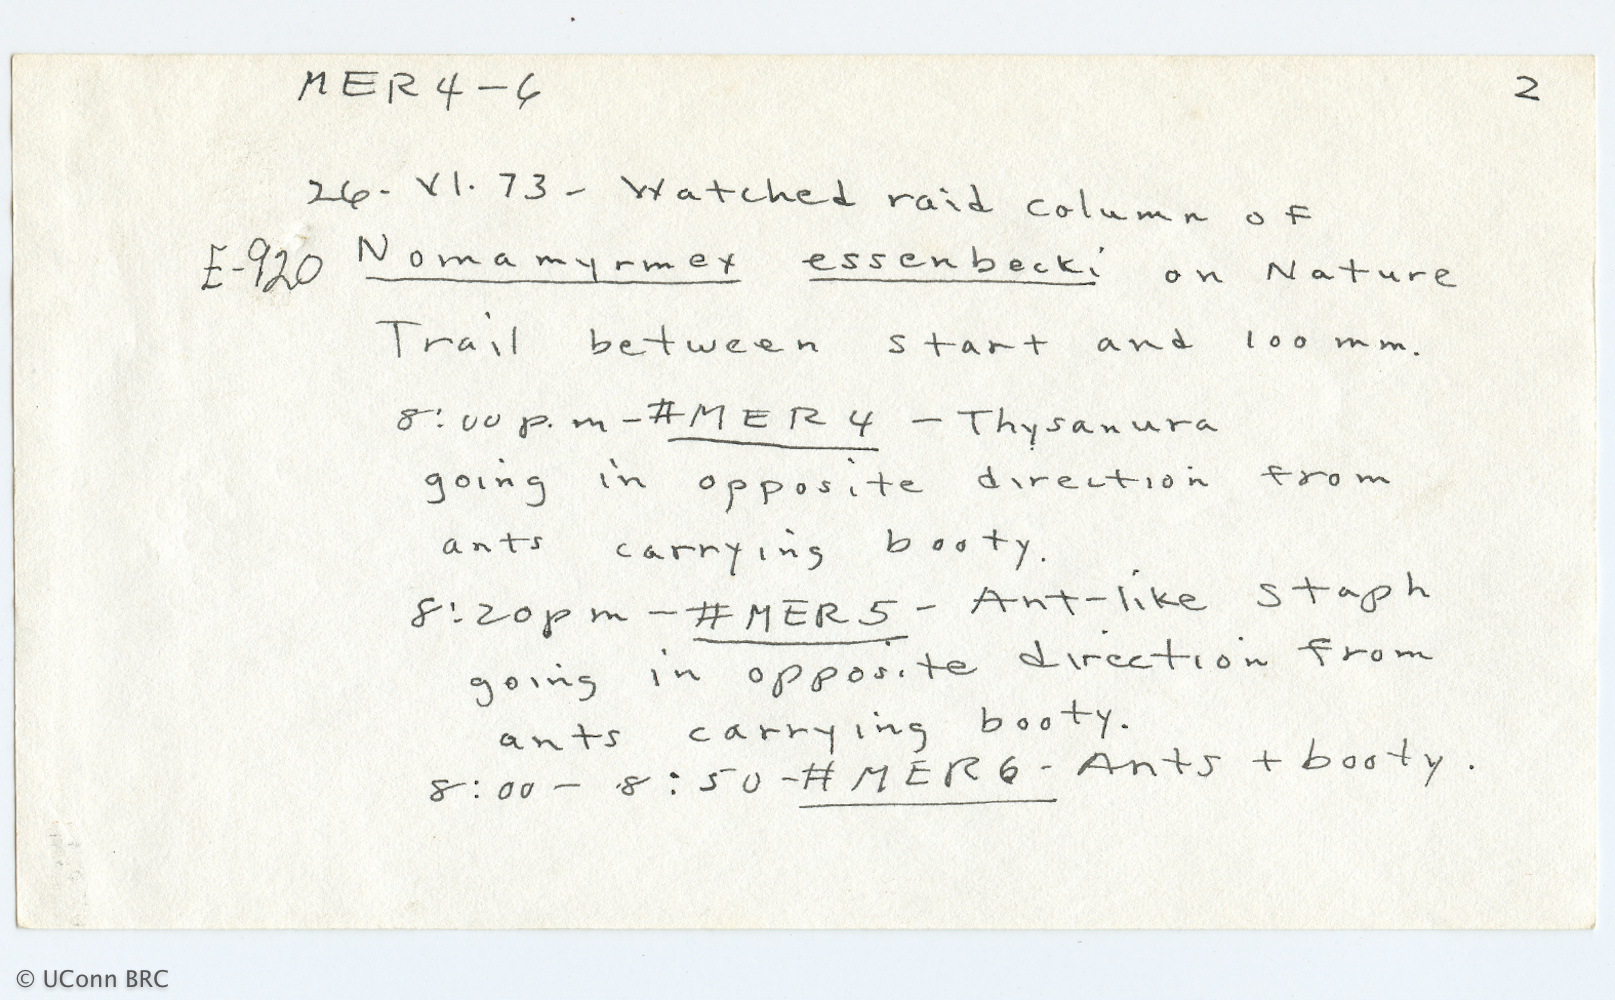 MER 4-6 2
26. VI. 73 - Watched raid column of
E-920 Nomamyrmex essenbecki on Nature
Trail between start and 100 mm.
8:00 p.m - #MER 4 - Thysanura
going in opposite direction from
ants carrying booty.
8:20 pm - #MER 5 - Ant-like staph
going in opposite direction from
ants carrying booty.
8:00 - 8:50 - #MER 6 - Ants + booty.
© UConn BRC